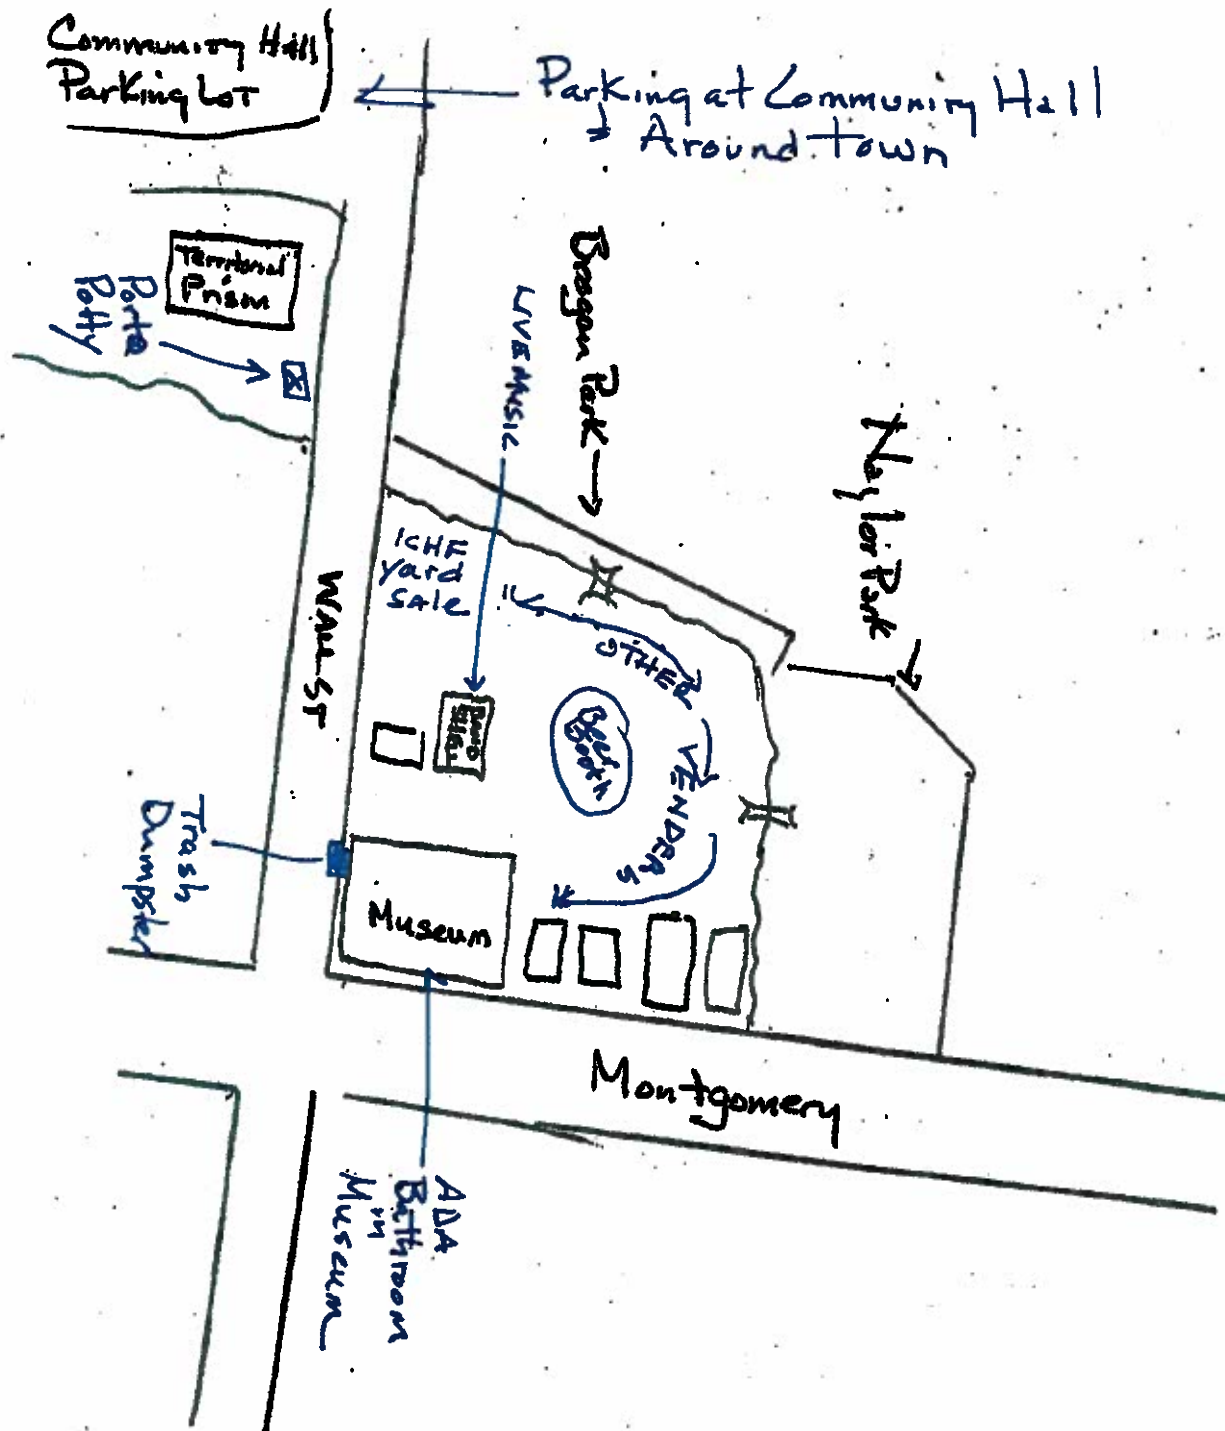 Community Hall
Parking Lot
Parking at Community Hall
& Around Town
Territorial
Prison
Porta
Potty
LIVE MUSIC
Brogan Park
Naylor Park
ICHF
yard
SALE
Wall ST
OTHER
VENDERS
Beer
Booth
BAND
SHELL
Trash
Dumpster
Museum
Montgomery
ADA
Bathroom
in
Museum